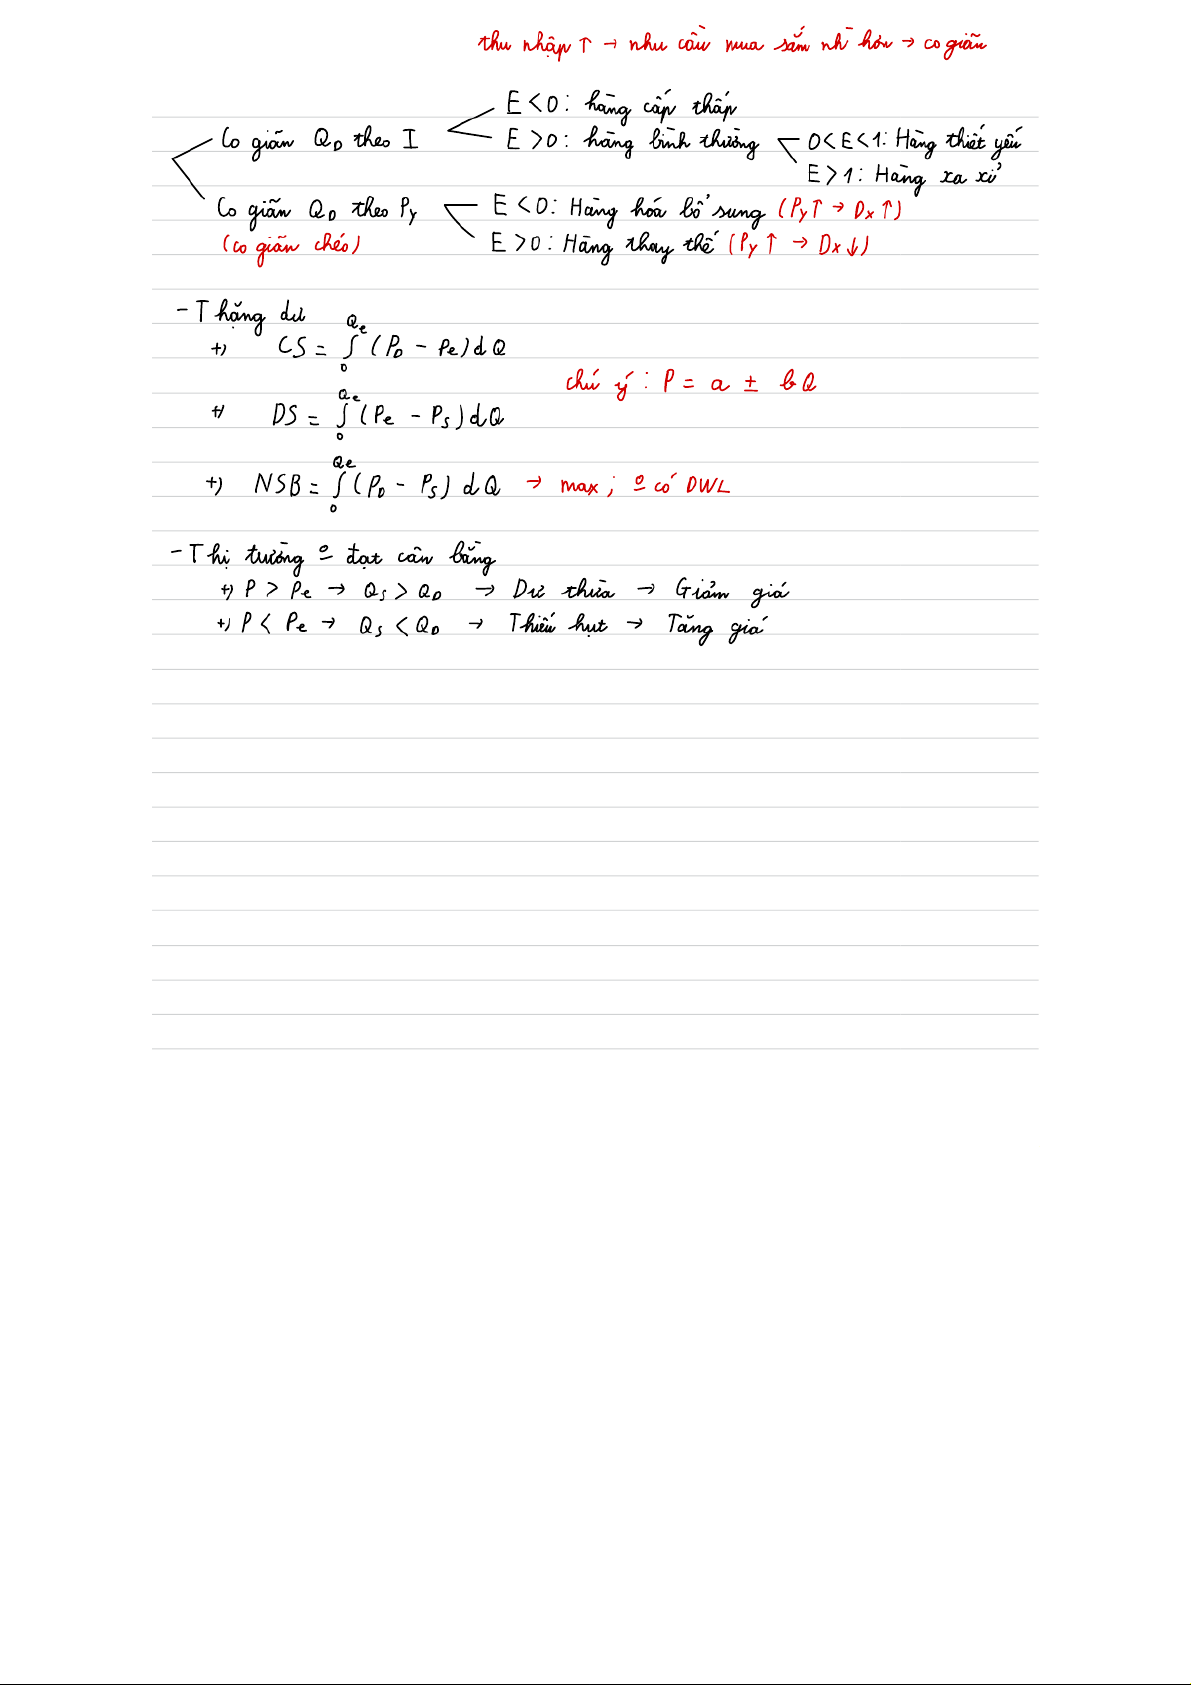 thu nhập ↑ → nhu cầu mua sắm nh` hơn → co giãn
E < 0: hàng cấp thấp
Co giãn Q_D theo I
E > 0: hàng bình thường
0 < E < 1: Hàng thiết yếu
E > 1: Hàng xa xỉ
Co giãn Q_D theo P_y
E < 0: Hàng hóa bổ sung (P_y ↑ → D_x ↑)
(co giãn chéo)
E > 0: Hàng thay thế (P_y ↑ → D_x ↓)
- Thặng dư
+) CS = ∫_0^{Q_e} (P_D - P_e) dQ
chú ý: P = a ± bQ
+) DS = ∫_0^{Q_e} (P_e - P_S) dQ
+) NSB = ∫_0^{Q_e} (P_D - P_S) dQ → max; º có DWL
- Thị tường º đạt cân bằng
+) P > P_e → Q_S > Q_D → Dư thừa → Giảm giá
+) P < P_e → Q_S < Q_D → Thiếu hụt → Tăng giá